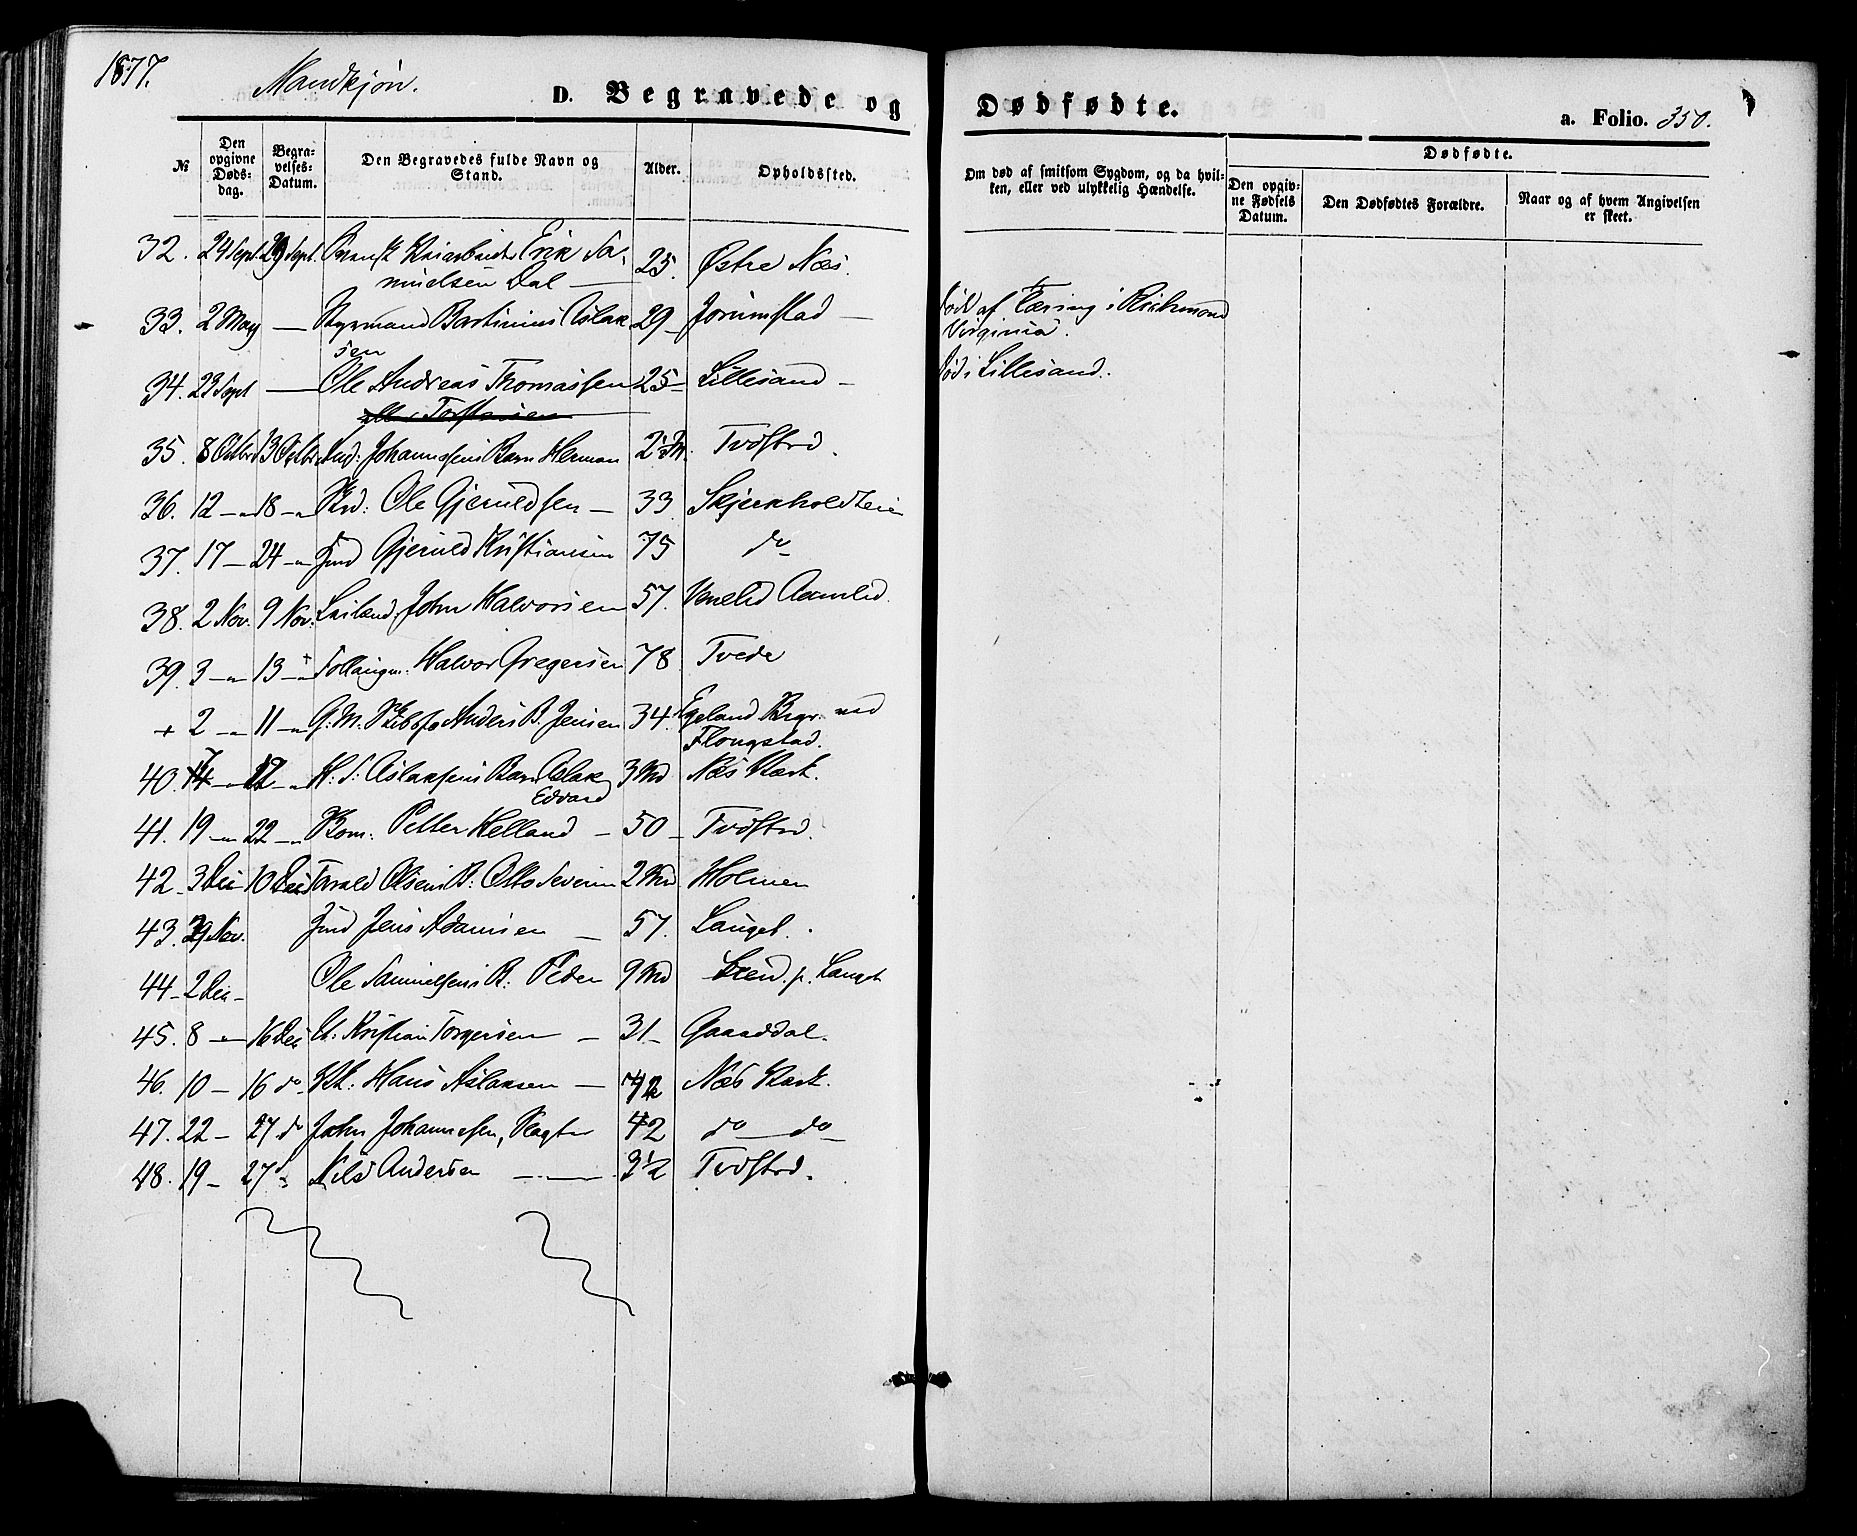 1877.
Mandkjøn.
D. Begravede og Dødfødte.
a. Folio. 350.
№
Den opgivne Dødsdag.
Begravelses-Datum.
Den Begravedes fulde Navn og Stand.
Alder.
Opholdssted.
Om død af smitsom Sygdom, og da hvilken, eller ved ulykkelig Hændelse.
Dødfødte.
Den opgivne Fødsels Datum.
Den Dødfødtes Forældre.
Naar og af hvem Angivelsen er skeet.
32. 24 Sept. 29 Sept. Svensk Erik Samuelsen Dal — 25. Østre Næs.
33. 2 May — Styrmand Bastinius Aslaksen 29 — Jorunstad — Død af Tæring i Richmond Virginia.
34. 23 Sept — Ole Andreas Thomassen 25 — Lillesand — Død i Lillesand.
35. 8 Octbr 13 Octbr Johannessens Barn Herman Tvdstrd.
36. 12 — 18 — Ole Gjeruldsen — 33 Skjerkholdteie
37. 17 — 24 — Gjeruld Kristiansen 75 do
38. 2 Nov. 9 Nov. John Halvorsen 57. Aamlid.
39. 3 — 13 — Halvor Gregersen 78 Tvede
+ 2 — 11 — G. M. Anders B. Jensen 34. Egeland Begr. ved Flongstad.
40. 17 — 22 — H. S. Aslaksens Barn Aslak Edvard 3 Md Næs Værk.
41. 19 — 22 — Petter Helland — 50 — Tvdstrd.
42. 3 Dec 10 Dec Tarald Olsens B: Otto Severin 2 Md Holmen
43. 29 Nov. Jens Adamsen — 57. Langel.
44 — 2 Dec — Ole Samuelsens B: Peder 9 Md p. Langel
45. 8 — 16 Dec Et: Kristian Torgersen — 31 — Gaasdal.
46. 10 — 16 do Hans Aslaksen — 42 Næs Værk.
47. 22 — 27 do John Johannesen, Vægter 42 do — do —
48. 19 — 27 d. Nils Andersen — 3½ Tvdstrd.